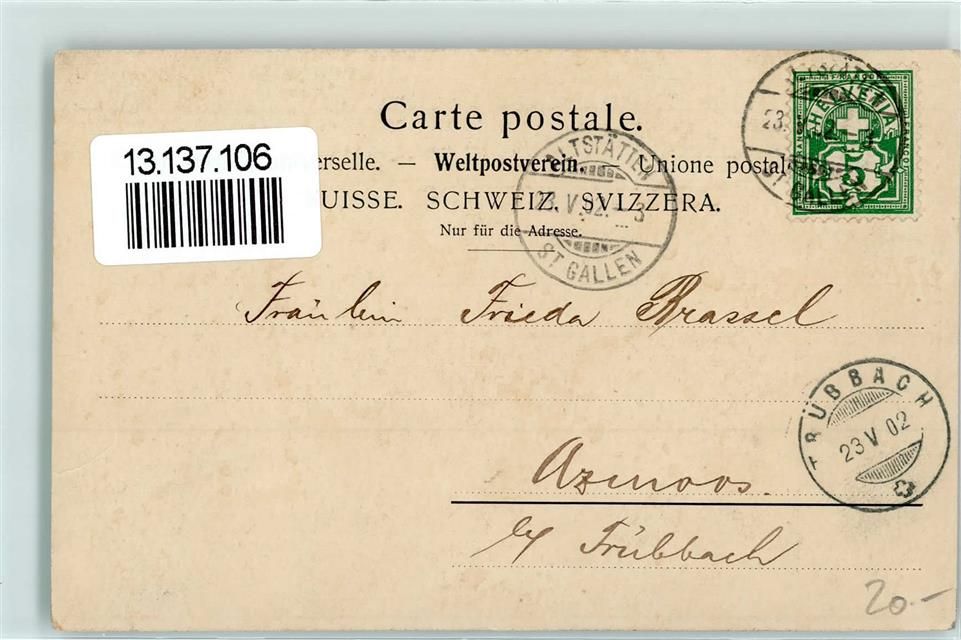 Carte postale.
13.137.106
erselle. — Weltpostverein. — Unione postal
UISSE. SCHWEIZ. SVIZZERA.
Nur für die Adresse.
HELVETIA
ALTSTÄTTEN
23. V. 02. – 5
ST GALLEN
23.
ST GALLEN
Fräulein Frieda Brassel
TRÜBBACH
23 V 02
Azmoos.
b/ Trübbach
20.-